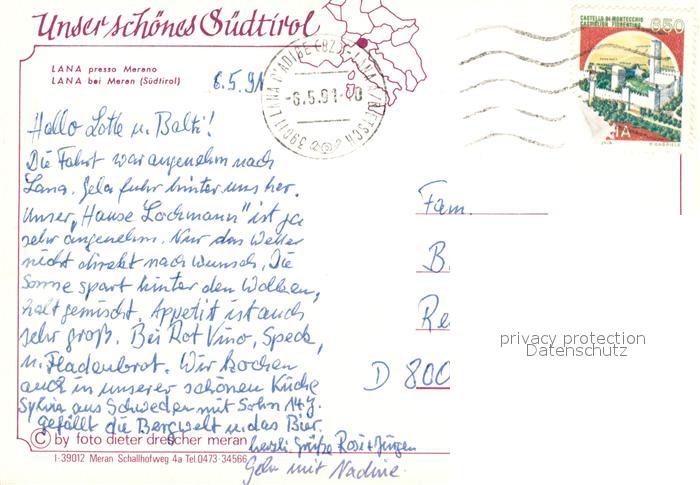 Unser schönes Südtirol
LANA presso Merano
LANA bei Meran (Südtirol)
6.5.91
39011 LANA D'ADIGE (BZ)
-6.5.91-
CASTELLO DI MONTECCHIO
CASTIGLION FIORENTINO
650
Hallo Lotte u. Balti!
Die Fahrt war angenehm nach
Lana. fuhr hinter uns her.
Unser „Hause Lochmann" ist ja
sehr angenehm. Nur das Wetter
nicht direkt nach Wunsch. Die
Sonne spart hinter den Wolken,
halt gemischt. Appetit ist auch
sehr groß. Bei Rot Vino, Speck,
u. Fladenbrot. Wir kochen
auch in unserer schönen Küche
Sylvia aus Schweden mit Sohn 14 J.
gefällt die Bergwelt u. das Bier.
herzl. Grüße Rosi + Jürgen
mit Nadine.
Fam.
B.
Re
D 800
privacy protection
Datenschutz
© by foto dieter drescher meran
I-39012 Meran Schallhofweg 4a Tel.0473-34566